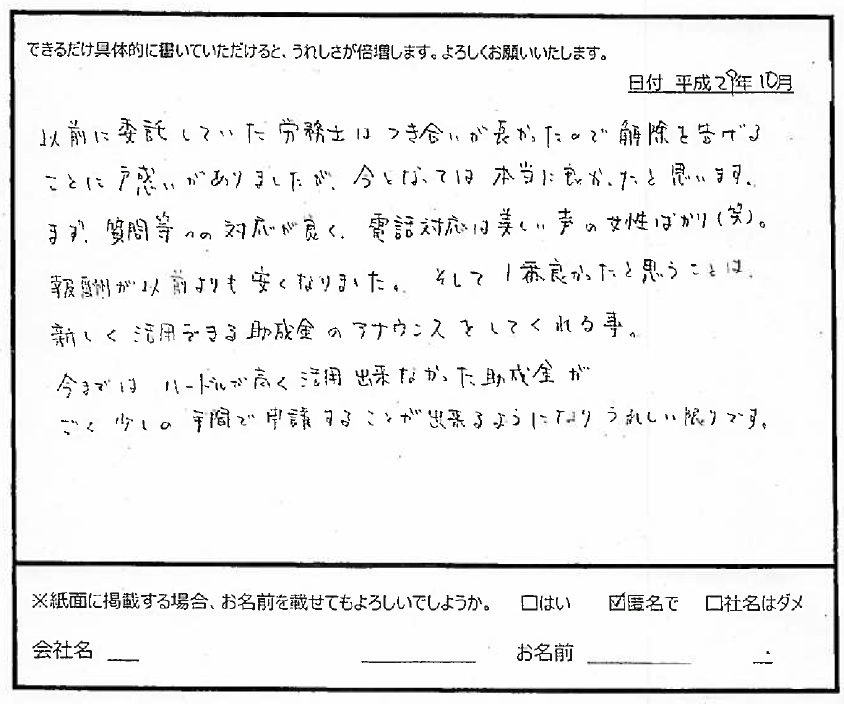 できるだけ具体的に書いていただけると、うれしさが倍増します。よろしくお願いいたします。
日付 平成29年10月
以前に委託していた労務士はつき合いが長かったので解除を告げる
ことに戸惑いがありましたが、今となっては本当に良かったと思います。
まず、質問等への対応が良く、電話対応は美しい声の女性ばかり(笑)。
報酬が以前よりも安くなりました。そして1番良かったと思うことは、
新しく活用できる助成金のアナウンスをしてくれる事。
今までは ハードルが高く活用出来なかった助成金が
ごく少しの手間で申請することが出来るようになりうれしい限りです。
※紙面に掲載する場合、お名前を載せてもよろしいでしょうか。 □はい ☑匿名で □社名はダメ
会社名 お名前